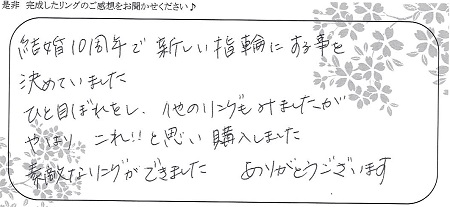 是非 完成したリングのご感想をお聞かせください♪
結婚10周年で新しい指輪にする事を
決めていました
ひと目ぼれをし、他のリングもみましたが
やはり、これ!!と思い購入しました
素敵なリングができました ありがとうございます